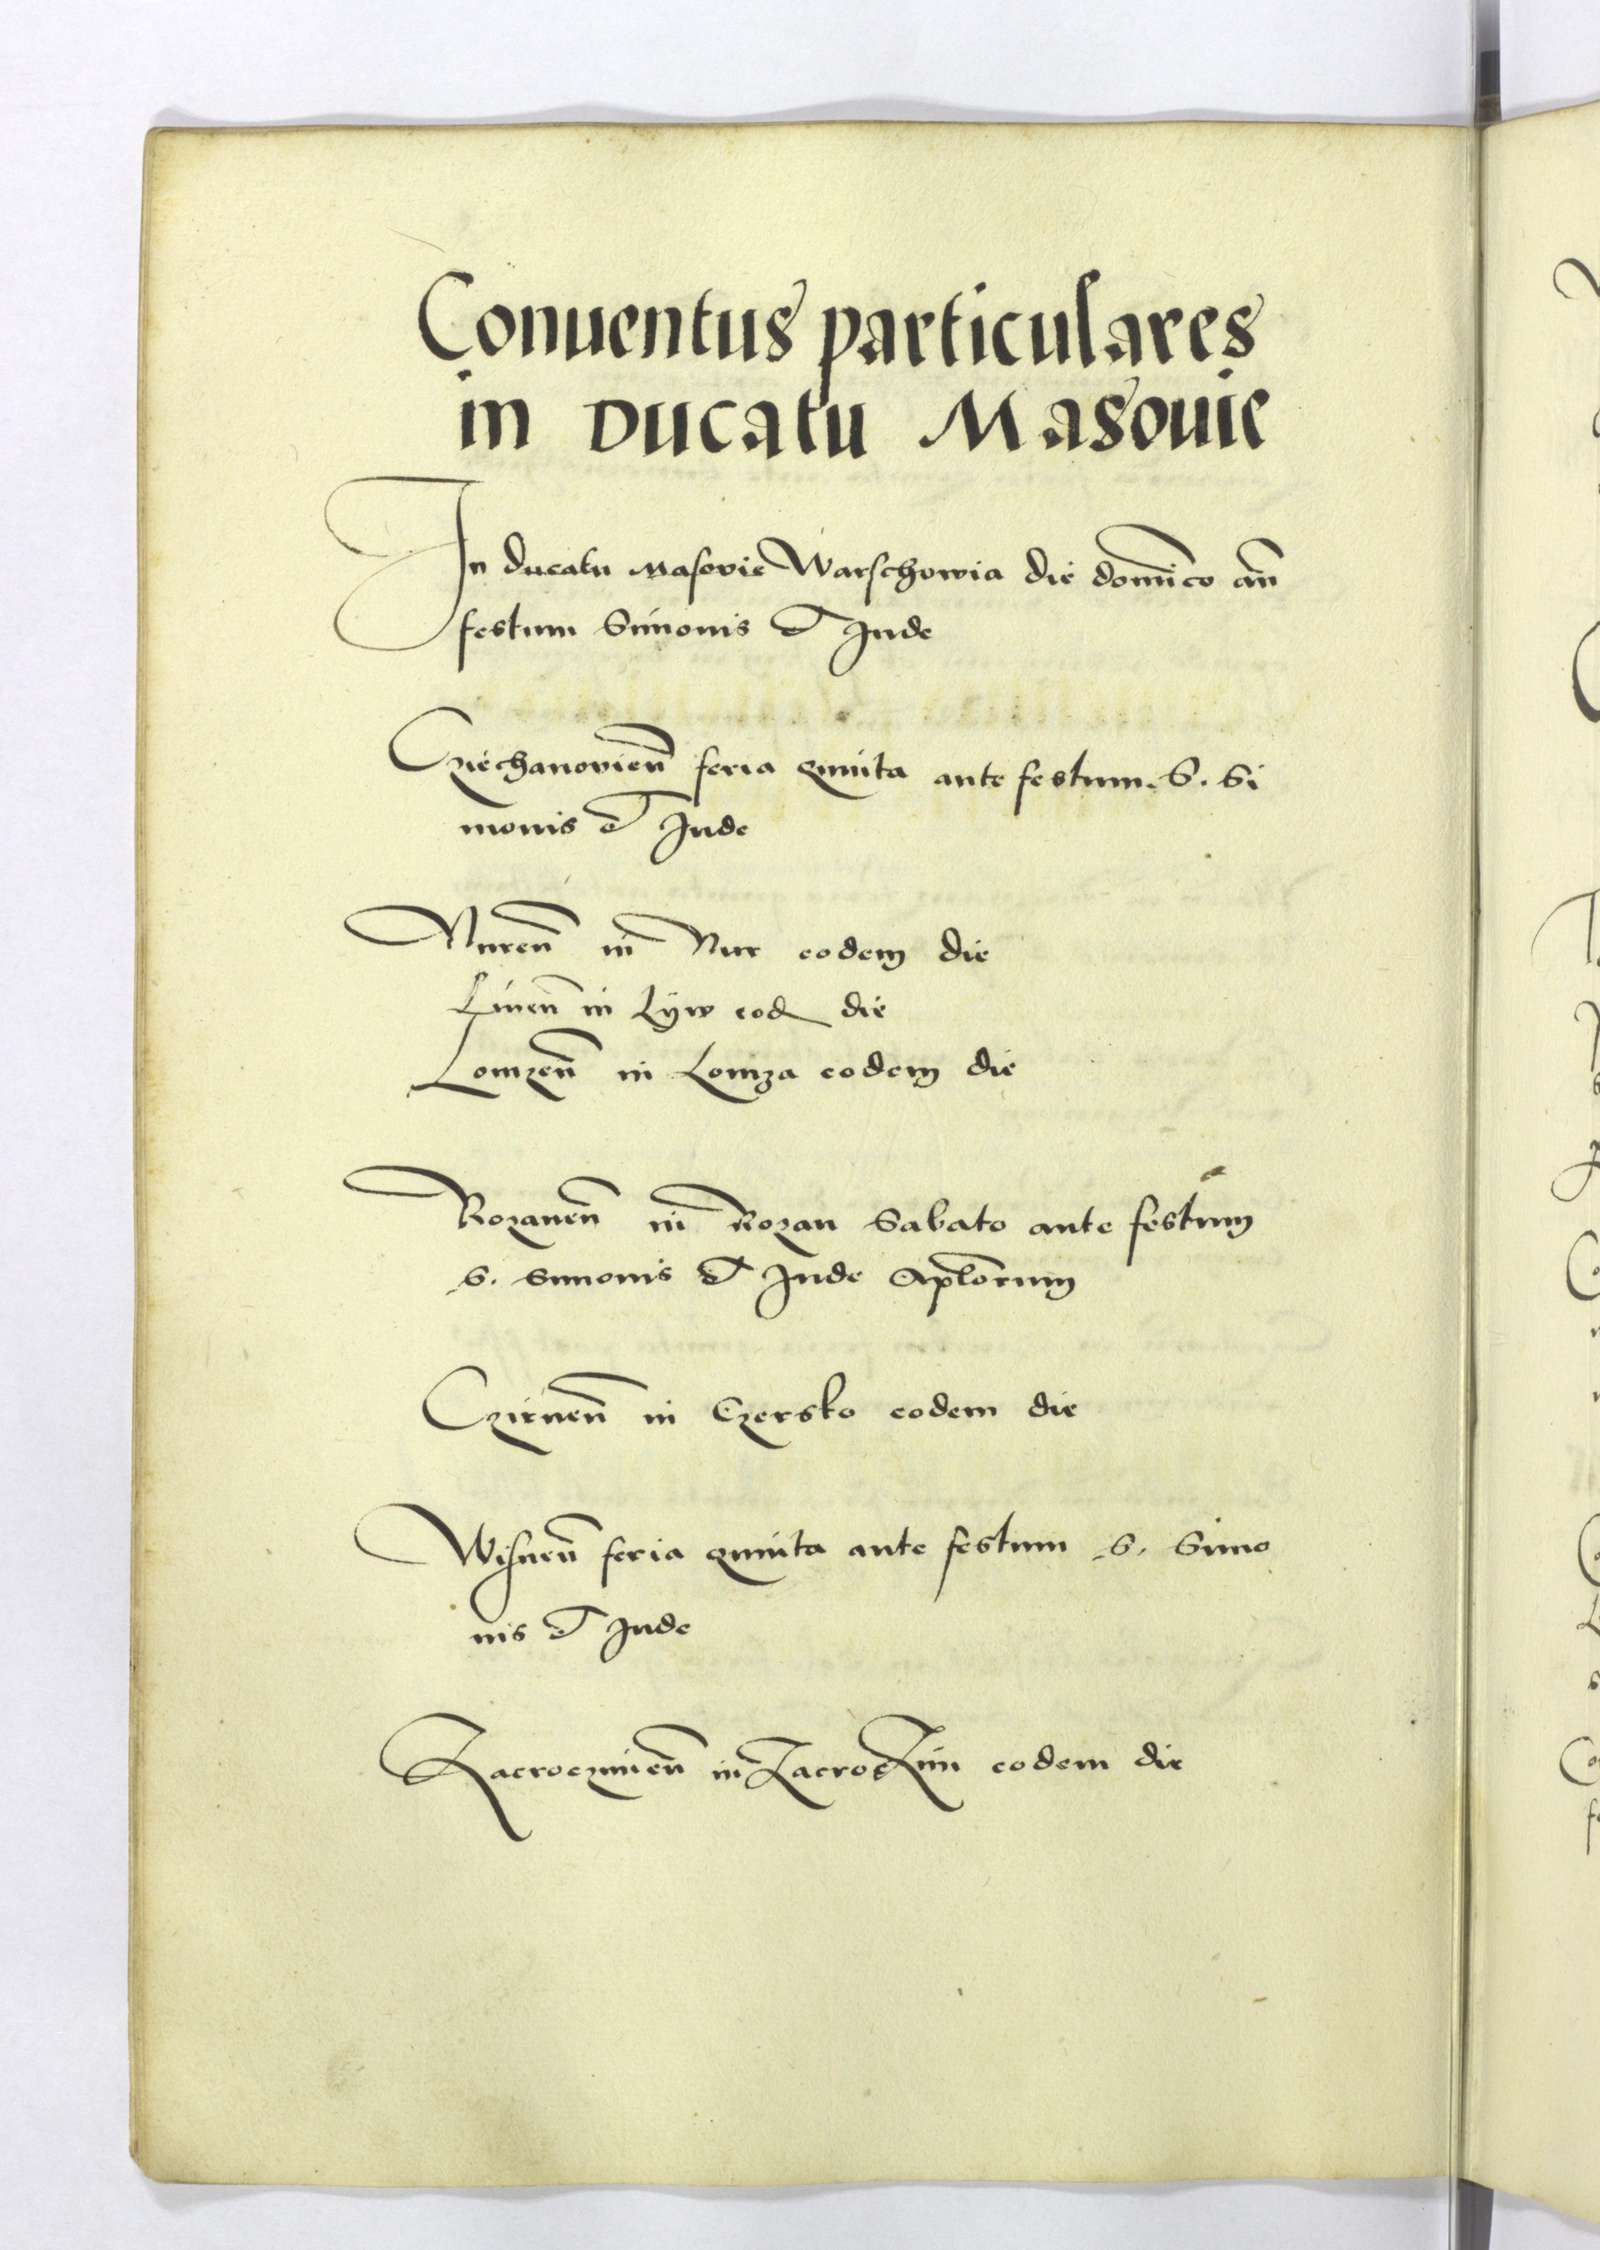 Conuentus particulares
in Ducatu Masouie
In ducatu Masovie Warschowia die domīco añ
festum Simonis et Jude
Cziechanovieñ feria quinta ante festum. S. Si
monis et Jude
Nureñ in Nur eodem die
Liueñ in Lÿw eod die
Lomzeñ in Lomza eodem die
Rozaneñ in Rozan Sabato ante festum
S. Simonis et Jude Aplorum
Czirneñ in Czersko eodem die
Wisneñ feria quinta ante festum S. Simo
nis et Jude
Zacroczimieñ in Zacroczim eodem die